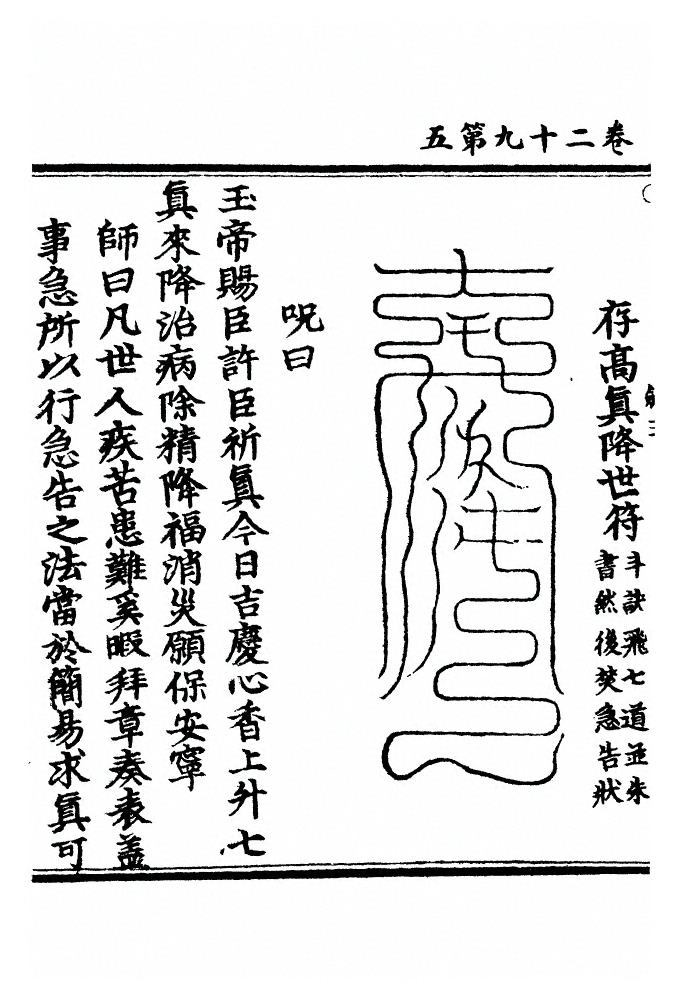 卷二十九第五
存高真降世符
斗訣飛七道並朱
書然後焚急告狀
呪曰
玉帝賜臣許臣祈真今日吉慶心香上升七
真來降治病除精降福消災願保安寧
師曰凡世人疾苦患難奚暇拜章奏表蓋
事急所以行急告之法當於簡易求真可